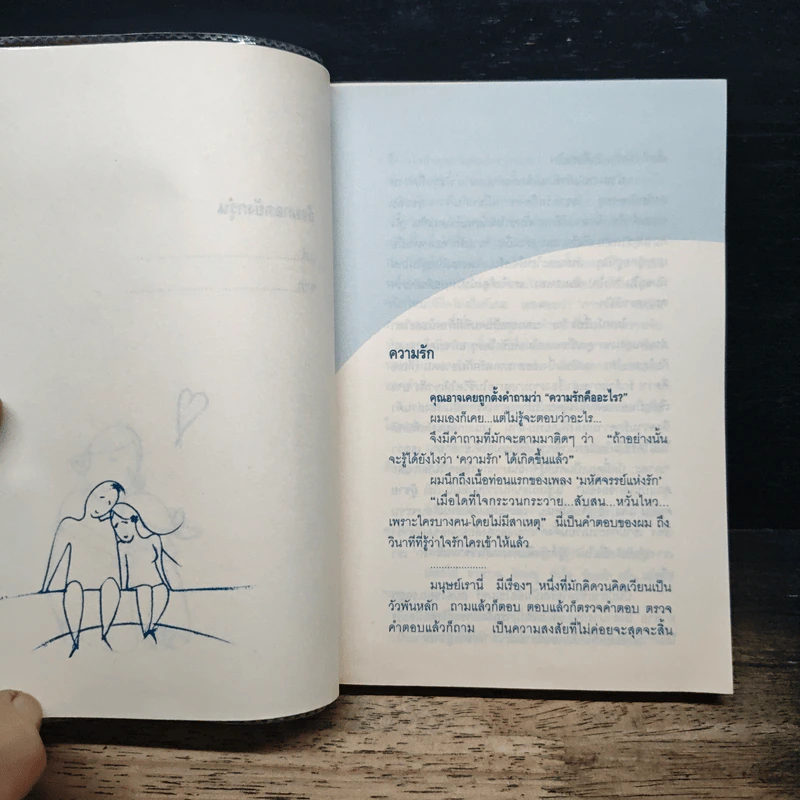 ความรัก
คุณอาจเคยถูกตั้งคำถามว่า “ความรักคืออะไร?”
ผมเองก็เคย...แต่ไม่รู้จะตอบว่าอะไร...
จึงมีคำถามที่มักจะตามมาติดๆ ว่า “ถ้าอย่างนั้น
จะรู้ได้ยังไงว่า ‘ความรัก’ ได้เกิดขึ้นแล้ว”
ผมนึกถึงเนื้อท่อนแรกของเพลง ‘มหัศจรรย์แห่งรัก’
“เมื่อใดที่ใจกระวนกระวาย...สับสน...หวั่นไหว...
เพราะใครบางคน-โดยไม่มีสาเหตุ” นี่เป็นคำตอบของผม ถึง
วินาทีที่รู้ว่าใจรักใครเข้าให้แล้ว
....................
มนุษย์เรานี่ มีเรื่องๆ หนึ่งที่มักคิดวนคิดเวียนเป็น
วัวพันหลัก ถามแล้วก็ตอบ ตอบแล้วก็ตรวจคำตอบ ตรวจ
คำตอบแล้วก็ถาม เป็นความสงสัยที่ไม่ค่อยจะสุดจะสิ้น